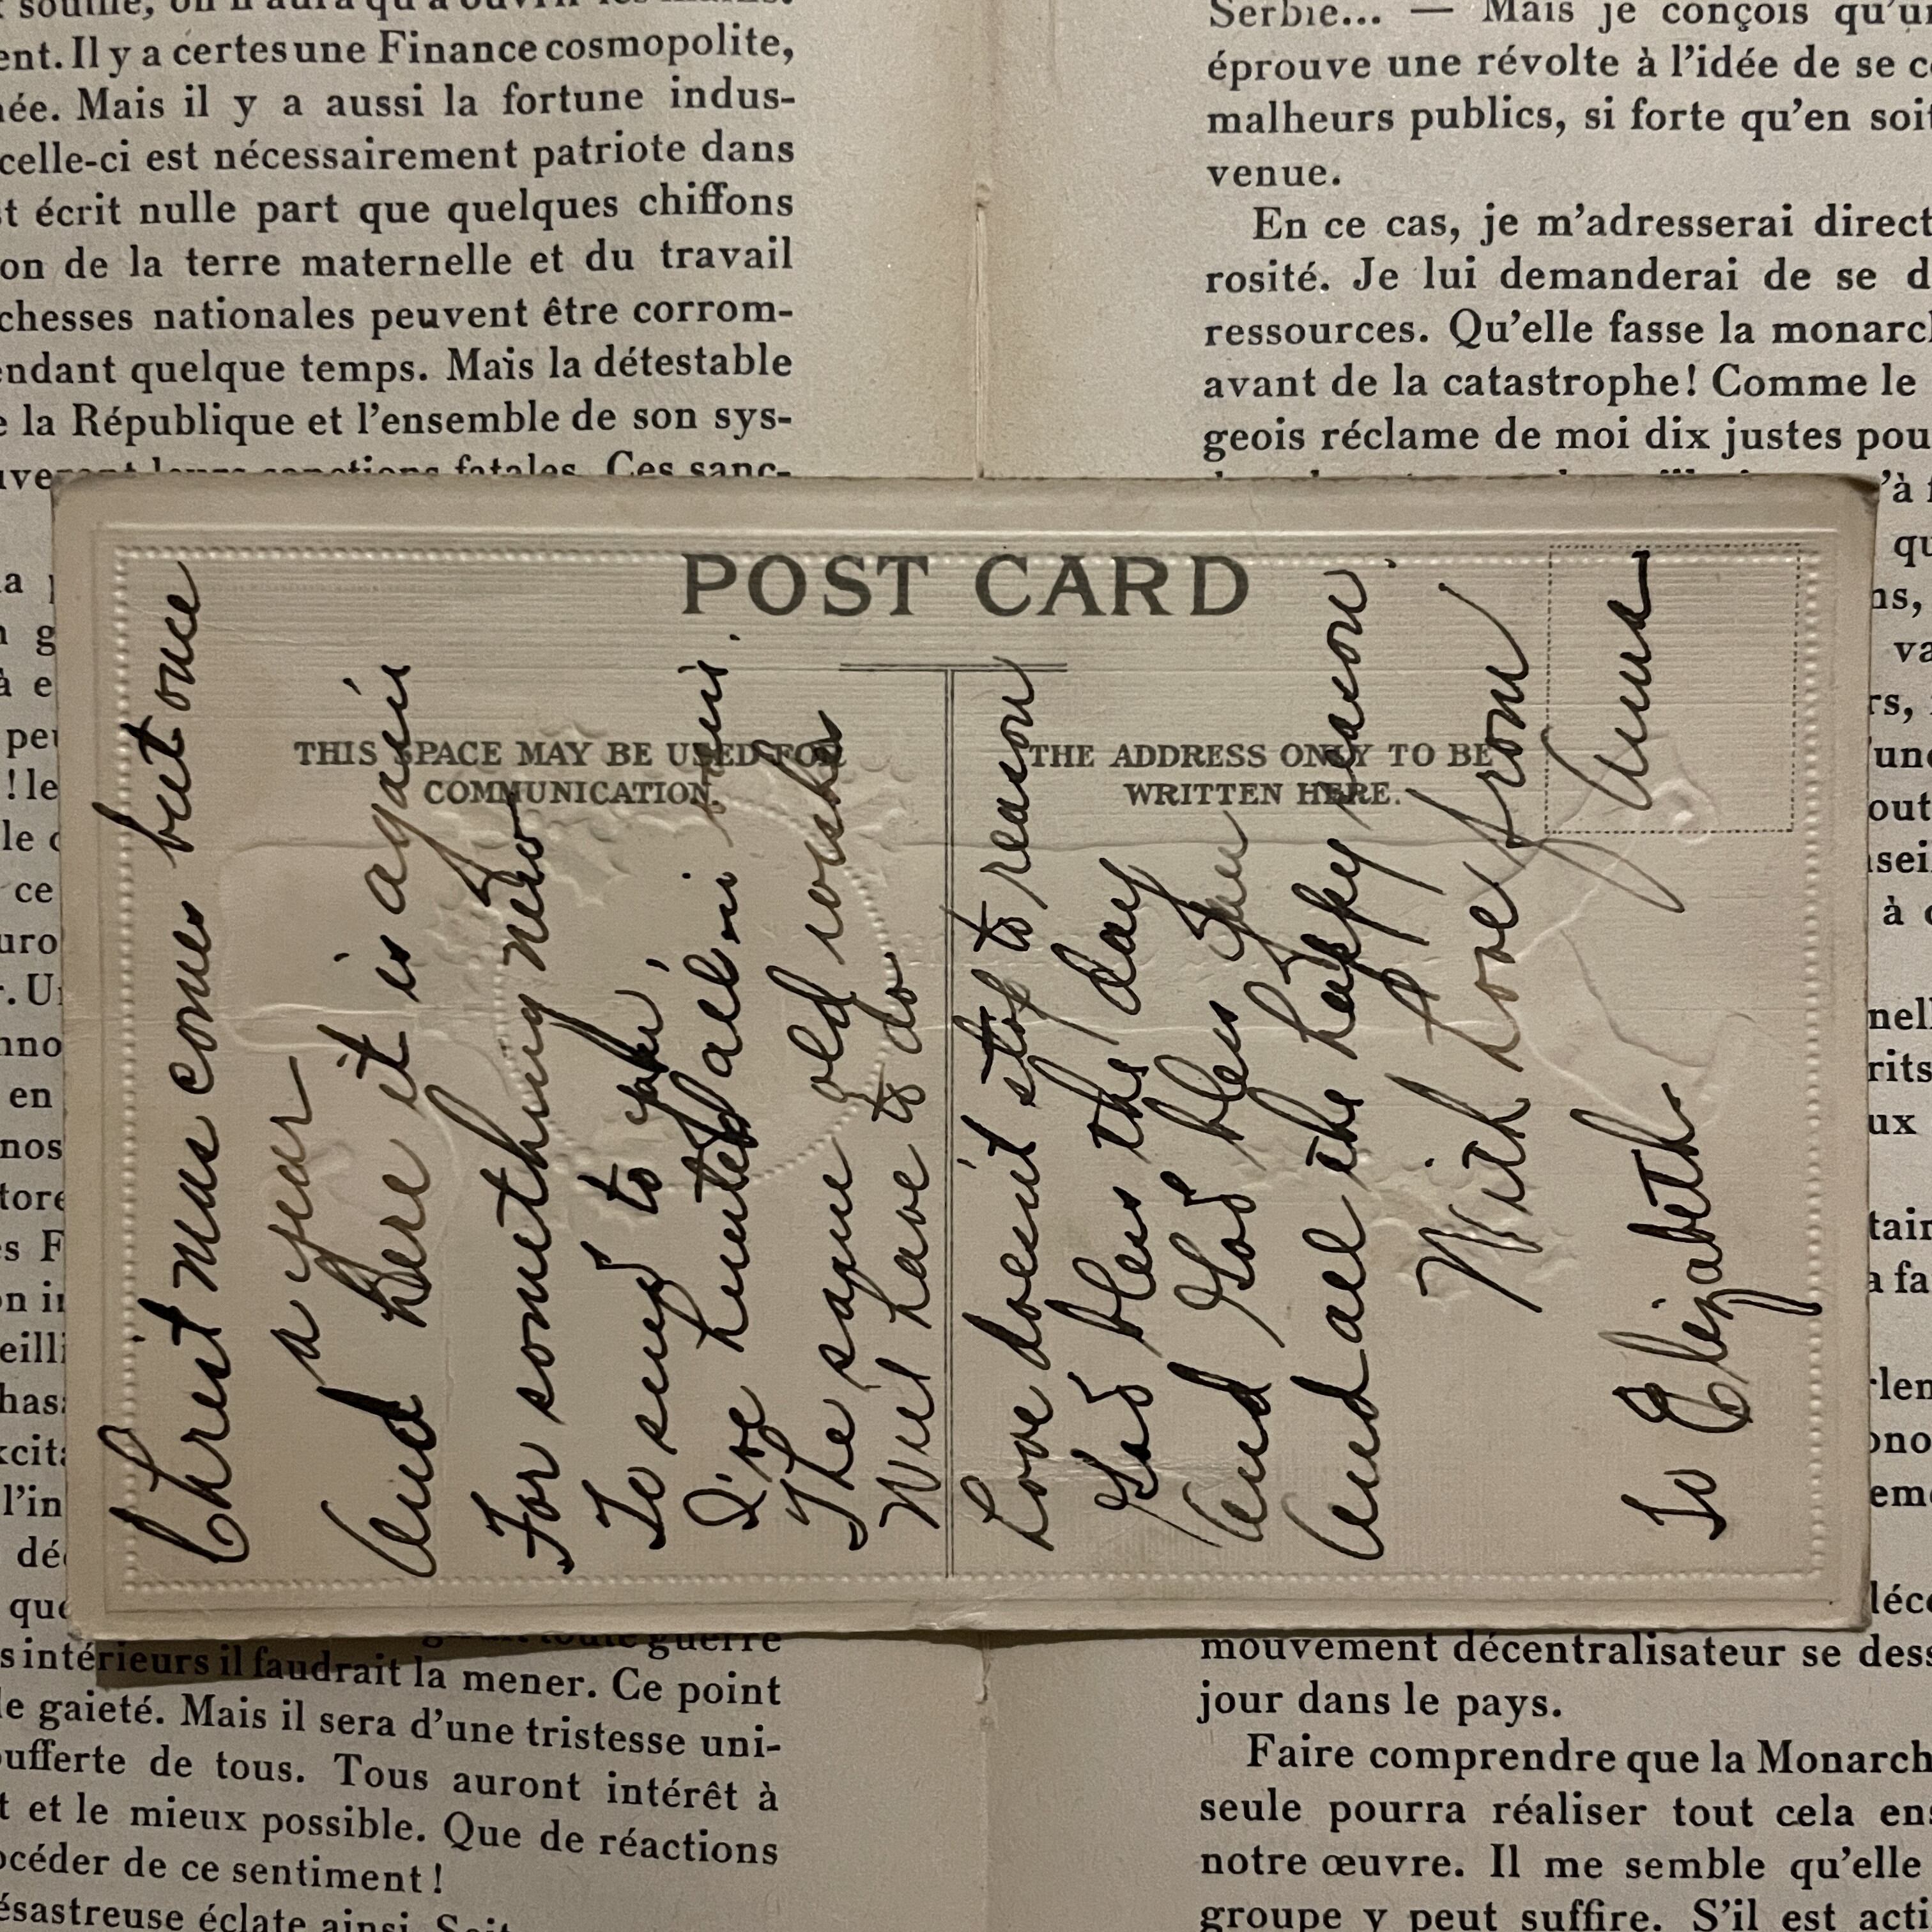 souffle, on n'aura qu'à ouvrir les mains.
ent. Il y a certes une Finance cosmopolite,
née. Mais il y a aussi la fortune indus-
celle-ci est nécessairement patriote dans
st écrit nulle part que quelques chiffons
on de la terre maternelle et du travail
chesses nationales peuvent être corrom-
endant quelque temps. Mais la détestable
e la République et l'ensemble de son sys-
leurs sanctions fatales. Ces sanc-
Serbie... — Mais je conçois qu'un
éprouve une révolte à l'idée de se
malheurs publics, si forte qu'en soit
venue.
En ce cas, je m'adresserai direct
rosité. Je lui demanderai de se d
ressources. Qu'elle fasse la monarch
avant de la catastrophe! Comme le
geois réclame de moi dix justes pou
POST CARD
THIS SPACE MAY BE USED FOR
COMMUNICATION.
THE ADDRESS ONLY TO BE
WRITTEN HERE.
Christmas comes but once
a year
And here it is again
For something new
To send to you,
I've hunted all in vain.
The same old wishes
Will have to do
Love doesn't stop to reason
God bless the day
And God bless you
And all the happy season.
With love from
Anna
To Elizabeth.
toute guerre
s intérieurs il faudrait la mener. Ce point
de gaieté. Mais il sera d'une tristesse uni-
oufferte de tous. Tous auront intérêt à
t et le mieux possible. Que de réactions
océder de ce sentiment!
ésastreuse éclate ainsi. Soit
mouvement décentralisateur se dess
jour dans le pays.
Faire comprendre que la Monarch
seule pourra réaliser tout cela ens
notre œuvre. Il me semble qu'elle
groupe y peut suffire. S'il est acti